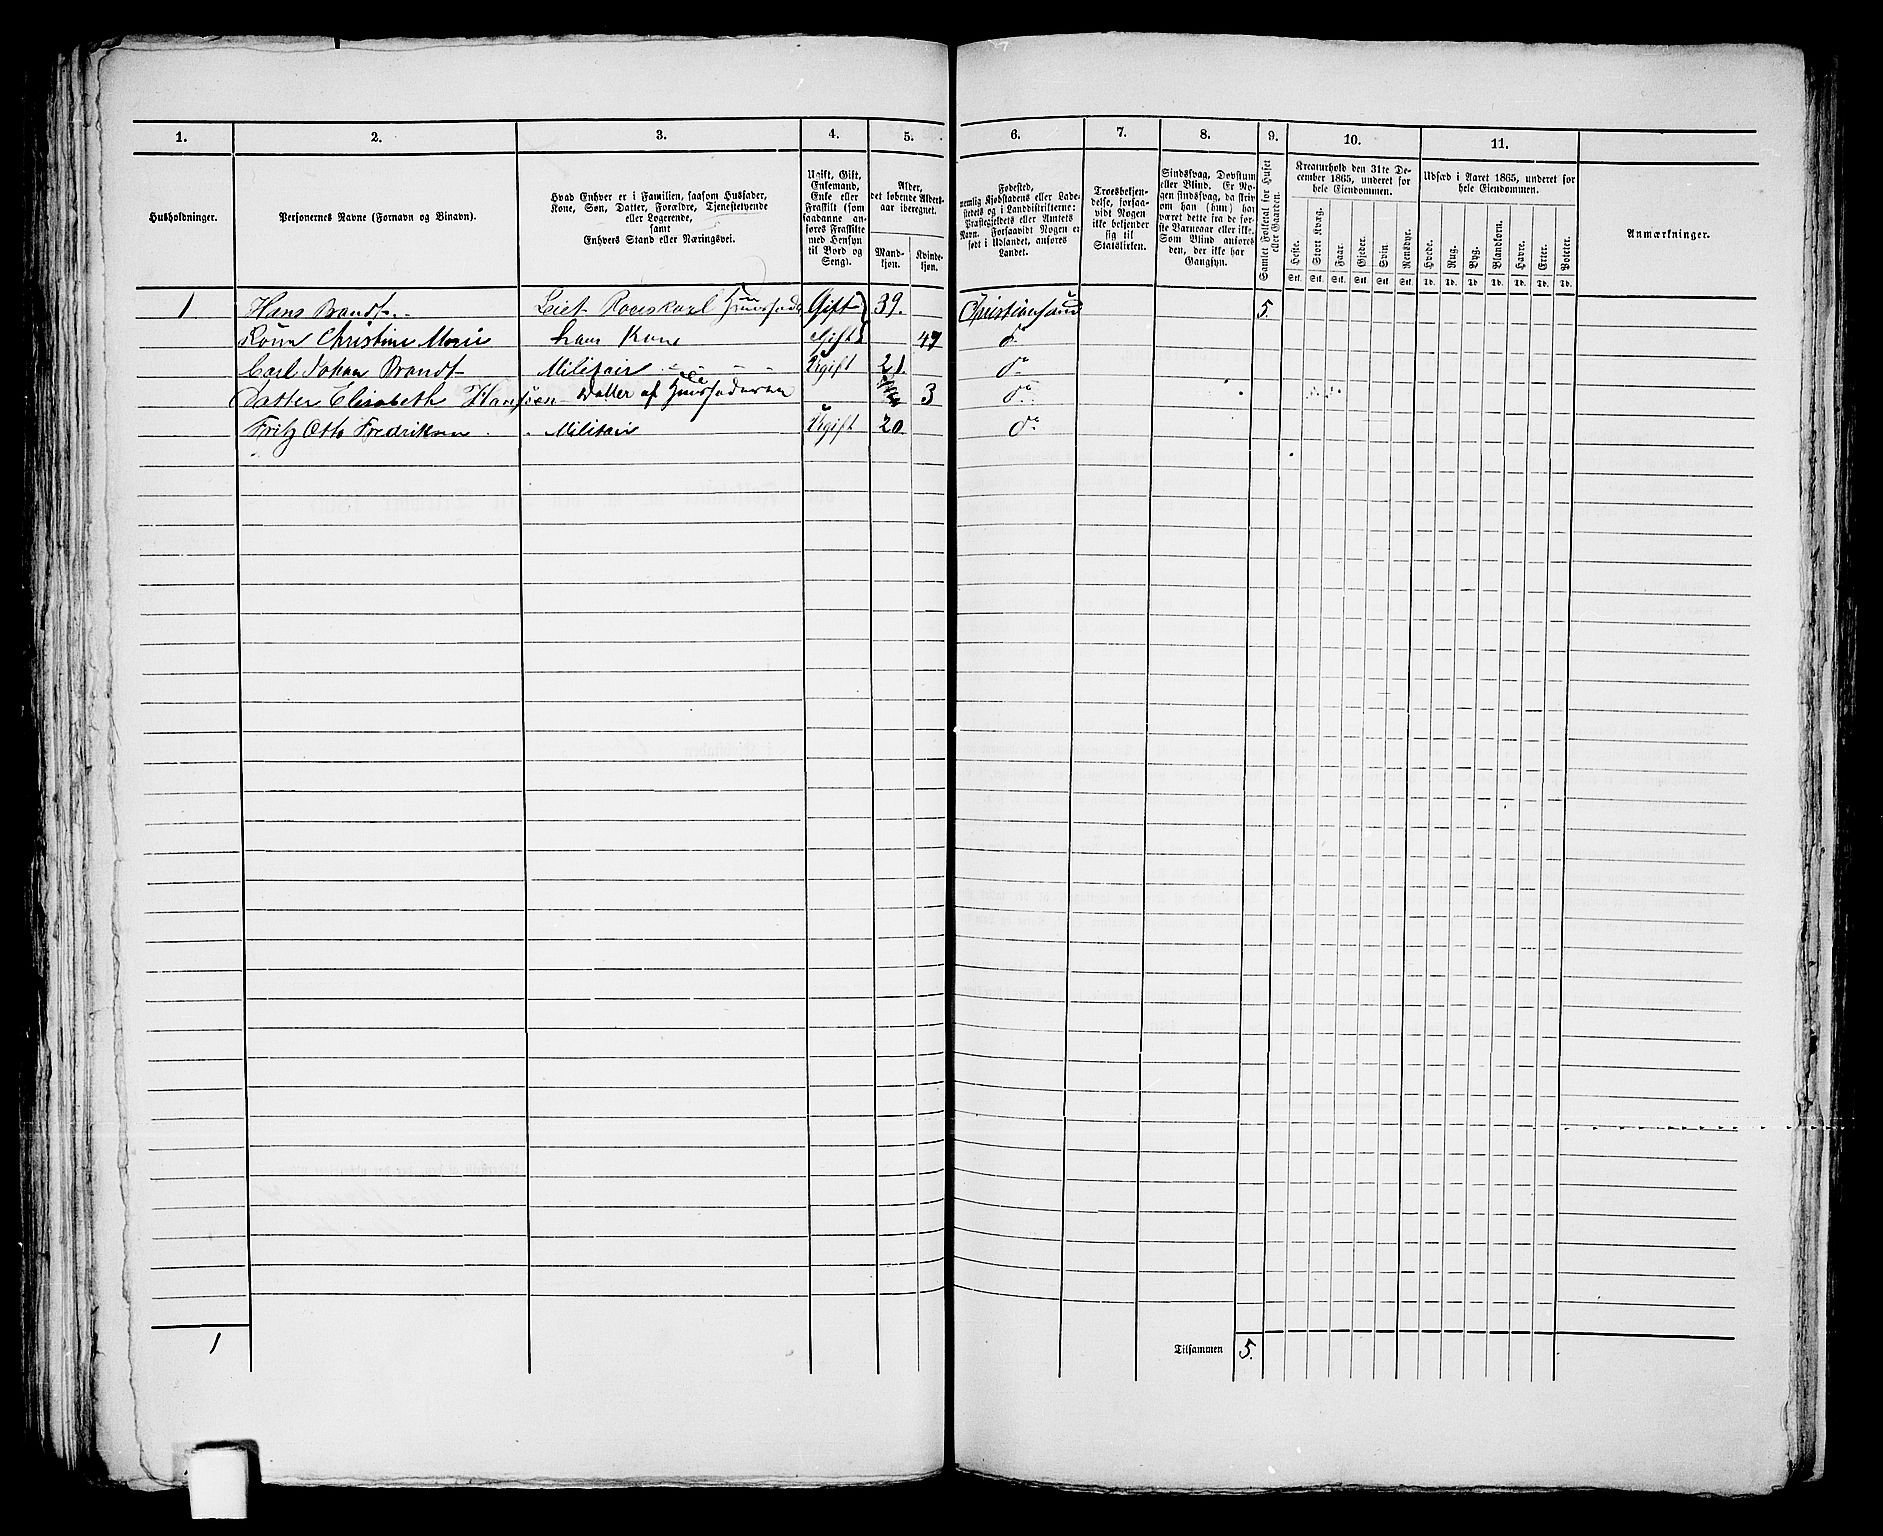 1. 2. 3. 4. 5. 6. 7. 8. 9. 10. 11.
Husholdninger.
Personernes Navne (Fornavn og Binavn).
Hvad Enhver er i Familien, saasom Husfader,
Kone, Søn, Datter, Forældre, Tjenestetyende
eller Logerende,
samt
Enhvers Stand eller Næringsvei.
Ugift, Gift,
Enkemand,
Enke eller
Fraskilt (som
saadanne an-
føres Fraskilte
med Hensyn
til Bord og
Seng).
Alder,
det løbende Alders-
aar iberegnet.
Mand-
kjøn.
Kvinde-
kjøn.
Fødested,
nemlig Kjøbstadens eller Lade-
stedets og i Landdistrikterne:
Præstegjeldets eller Amtets
Navn. Forsaavidt Nogen er
født i Udlandet, anføres
Landet.
Troesbekjen-
delse, forsaa-
vidt Nogen
ikke bekjender
sig til
Statskirken.
Sindssvag, Døvstum
eller Blind. Er No-
gen sindssvag, da skriv
om han (hun) har
været dette fra de før-
ste Barneaar eller ikke.
Som Blind anføres
den, der ikke har
Gangsyn.
Samlet Folketal for Huset
eller Gaarden.
Kreaturhold den 31te De-
cember 1865, underet for
hele Eiendommen.
Heste. Stort Kvæg. Faar. Gjeder. Svin Rensdyr.
Stk. Stk. Stk. Stk. Stk. Stk.
Udsæd i Aaret 1865, underet for
hele Eiendommen.
Hvede. Rug. Byg. Blandkorn. Havre. Erter. Poteter.
Td. Td. Td. Td. Td. Td. Td.
Anmærkninger.
1 Hans Brandt Roerskarl Huusfader Gift 39. Christiansand 5.
Christine Marie hans Kone Gift 47 do
Carl Johan Brandt Militair Ugift 21. do
Datter Elisabeth Hansen Datter af Huusfaderen 3 do
Fritz Otto Fredriksen Militair Ugift 20 do
1 Tilsammen 5.